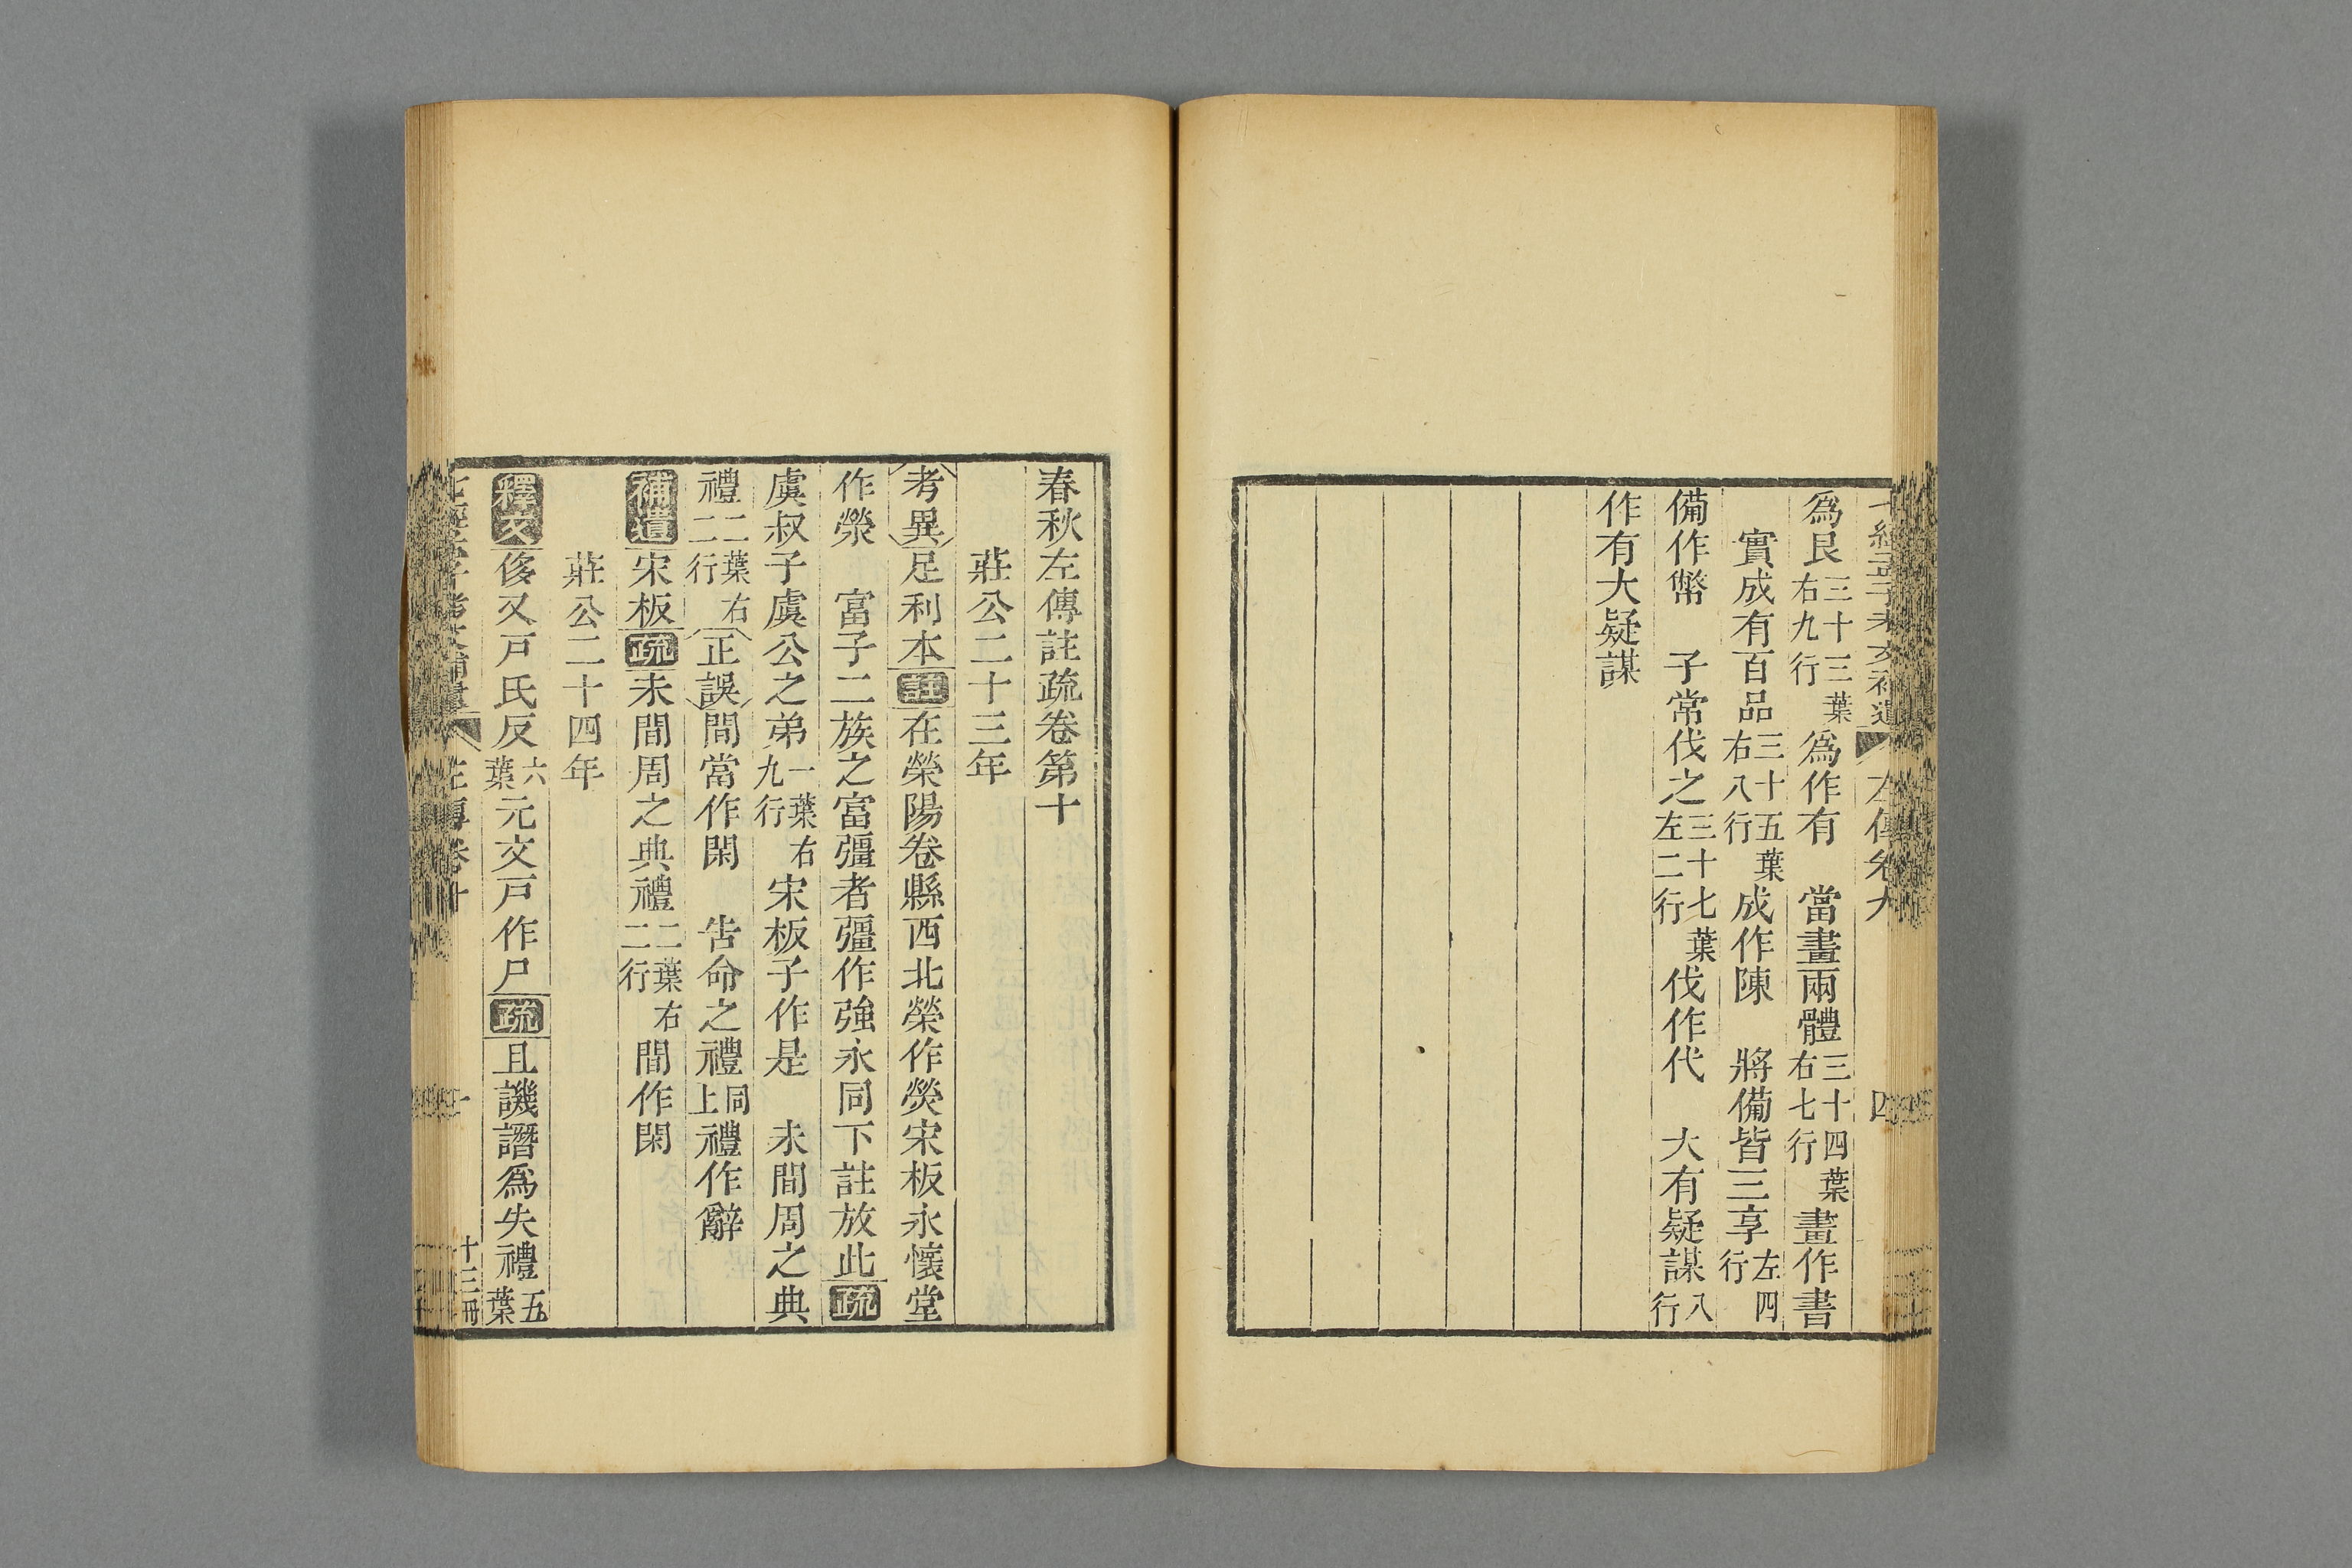 爲艮三十三葉右九行爲作有　當畫兩體三十四葉右七行畫作書
實成有百品三十五葉右八行成作陳　將備皆三享左四行
備作幣　子常伐之三十七葉左二行伐作代　大有疑謀八行
作有大疑謀
春秋左傳註疏卷第十
莊公二十三年
考異足利本註在榮陽卷縣西北榮作熒宋板永懷堂
作滎　富子二族之富彊者彊作強永同下註放此疏
虞叔子虞公之弟一葉右九行宋板子作是　未間周之典
禮二葉右二行正誤間當作閑　告命之禮同上禮作辭
補遺宋板疏未間周之典禮二葉右二行間作閑
莊公二十四年
釋文侈又戸氏反六葉元文戸作尸疏且譏譖爲失禮五葉
十三冊